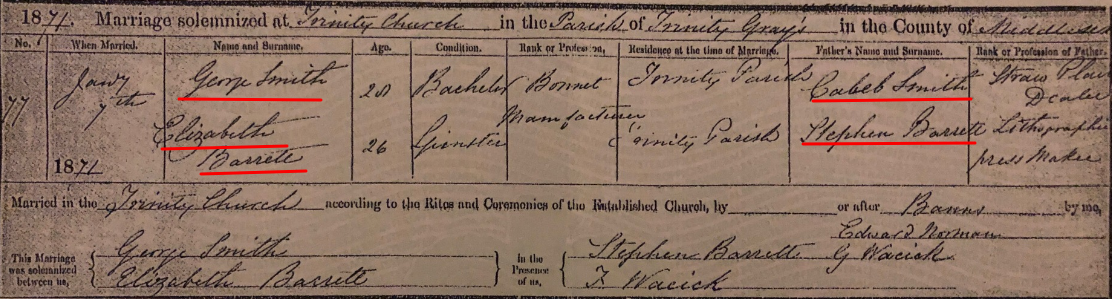 1871. Marriage solemnized at Trinity Church in the Parish of Trinity Gray's in the County of Middlesex
No. When Married. Name and Surname. Age. Condition. Rank or Profession, Residence at the time of Marriage. Father's Name and Surname. Rank or Profession of Father.
77 Jany 7th 1871 George Smith 28 Bachelor Bonnet Manufacturer Trinity Parish Caleb Smith Straw Plait Dealer
Elizabeth Barrett 26 Spinster Trinity Parish Stephen Barrett Lithographic press Maker
Married in the Trinity Church according to the Rites and Ceremonies of the Established Church, by or after Banns by me,
Edward Norman
This Marriage was solemnized between us, George Smith In the Presence of us, Stephen Barrett G Wacick
Elizabeth Barrett F Wacick